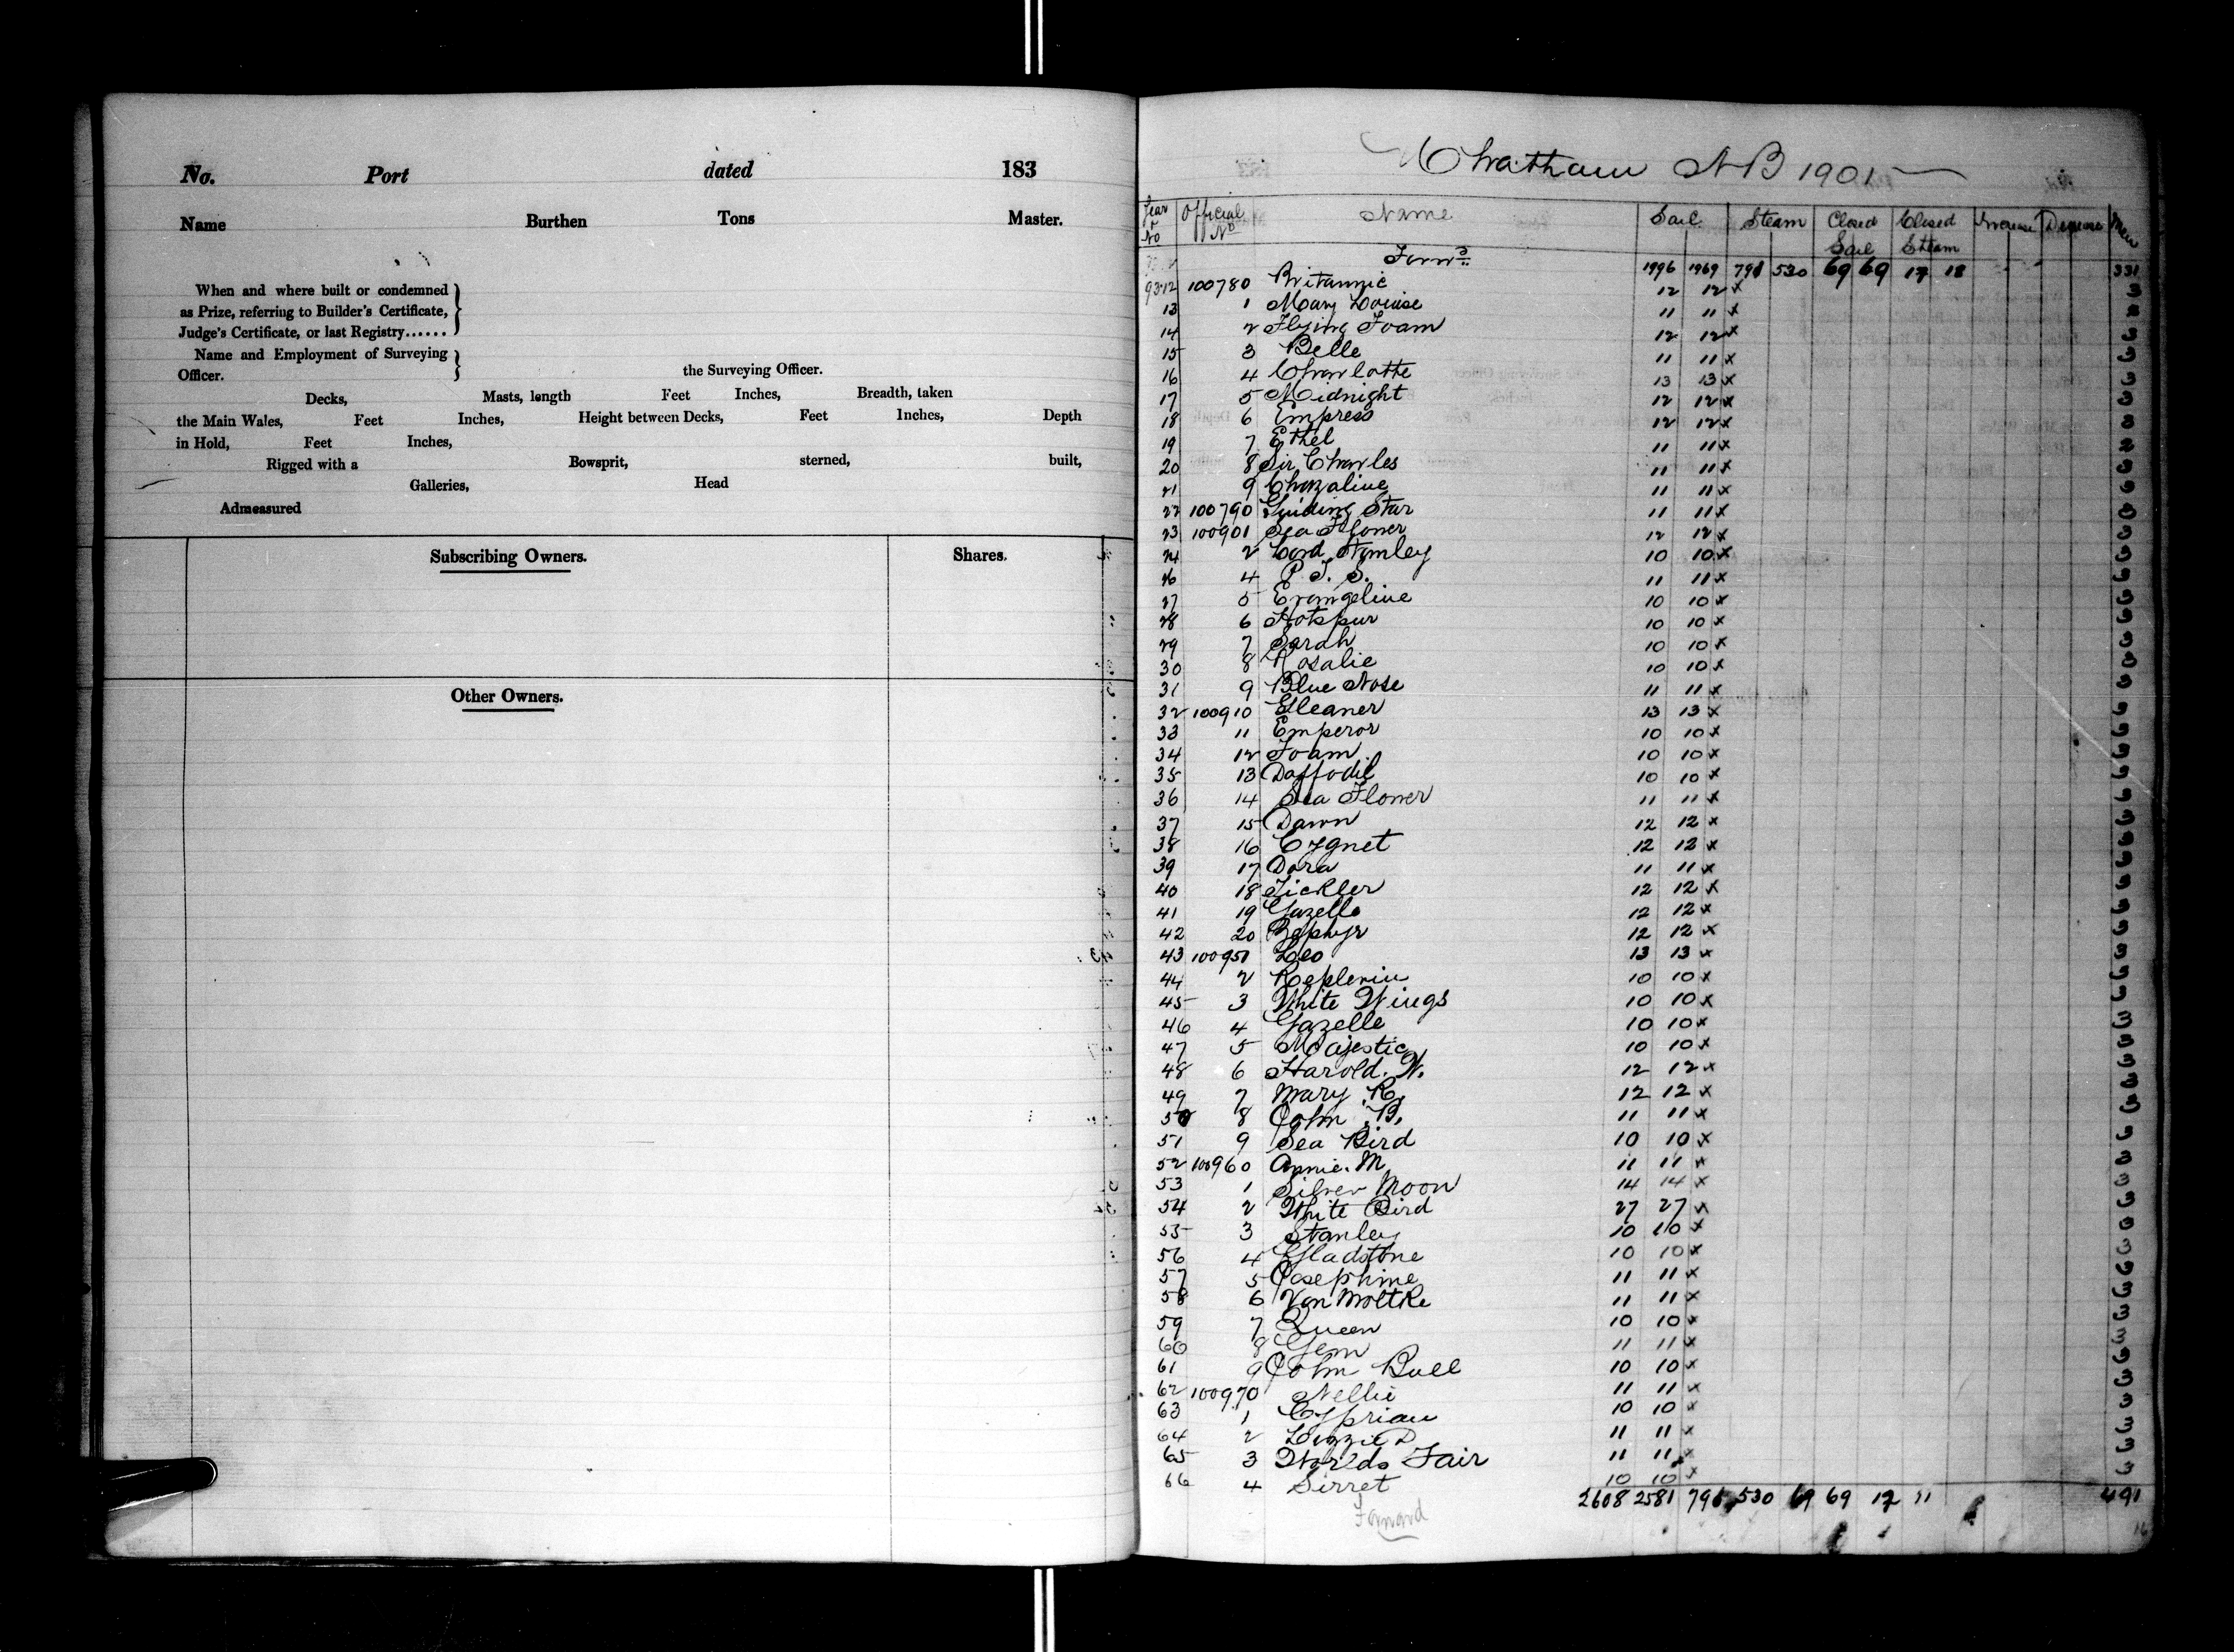 No. Port dated 183
Name Burthen Tons Master.
When and where built or condemned
as Prize, referring to Builder's Certificate,
Judge's Certificate, or last Registry......
Name and Employment of Surveying
Officer. the Surveying Officer.
Decks, Masts, length Feet Inches, Breadth, taken
the Main Wales, Feet Inches, Height between Decks, Feet Inches, Depth
in Hold, Feet Inches,
Rigged with a Bowsprit, sterned, built,
Galleries, Head
Admeasured
Subscribing Owners. Shares.
Other Owners.
Chatham NB 1901
Year & No Official No Name Sail Steam Closed Sail Closed Steam Increase Decrease Men
Forwd 1996 1969 791 530 69 69 17 18 331
93.12 100780 Britannic 12 12 x 3
13 1 Mary Louise 11 11 x
14 2 Flying Foam 12 12 x 3
15 3 Belle 11 11 x 3
16 4 Charlotte 13 13 x 3
17 5 Midnight 12 12 x 3
18 6 Empress 12 12 x 3
19 7 Ethel 11 11 x 3
20 8 Sir Charles 11 11 x 3
21 9 11 11 x 3
22 100790 Guiding Star 11 11 x 3
23 100901 Sea Flower 12 12 x 3
24 2 Lord Stanley 10 10 x 3
26 4 P. T. S. 11 11 x 3
27 5 Evangeline 10 10 x 3
28 6 Hotspur 10 10 x 3
29 7 Sarah 10 10 x 3
30 8 Rosalie 10 10 x 3
31 9 Blue Nose 11 11 x 3
32 100910 Gleaner 13 13 x 3
33 11 Emperor 10 10 x 3
34 12 Foam 10 10 x 3
35 13 Daffodil 10 10 x 3
36 14 Sea Flower 11 11 x 3
37 15 Dawn 12 12 x 3
38 16 Cygnet 12 12 x 3
39 17 Dora 11 11 x 3
40 18 Tickler 12 12 x 3
41 19 Gazelle 12 12 x 3
42 20 Zephyr 12 12 x 3
43 100951 Leo 13 13 x 3
44 2 10 10 x 3
45 3 White Wings 10 10 x 3
46 4 Gazelle 10 10 x 3
47 5 Majestic 10 10 x 3
48 6 Harold. W. 12 12 x 3
49 7 Mary R. 12 12 x 3
50 8 John B. 11 11 x 3
51 9 Sea Bird 10 10 x 3
52 100960 Annie. M 11 11 x 3
53 1 Silver Moon 14 14 x 3
54 2 White Bird 27 27 x 3
55 3 Stanley 10 10 x 3
56 4 Gladstone 10 10 x 3
57 5 Josephine 11 11 x 3
58 6 Von Moltke 11 11 x 3
59 7 Queen 10 10 x 3
60 8 Gem 11 11 x 3
61 9 John Bull 10 10 x 3
62 100970 Nellie 11 11 x 3
63 1 Cyprian 10 10 x 3
64 2 Lizzie D 11 11 x 3
65 3 Worlds Fair 11 11 x 3
66 4 Sirret 10 10 x 3
2608 2581 791 530 69 69 17 " 491
Forward
16